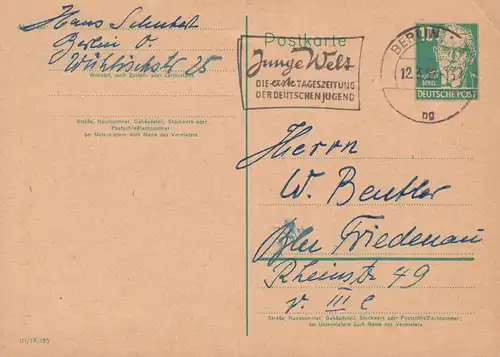 Hans Schubert
Berlin O.
Wühlischstr 25
Wohnort, auch Zustell- oder Leitpostamt
Straße, Hausnummer, Gebäudeteil, Stockwerk oder
Postschließfachnummer
bei Untermietern auch Name des Vermieters
Postkarte
Junge Welt
DIE erste TAGESZEITUNG
DER DEUTSCHEN JUGEND
BERLIN
12
ng
DEUTSCHE POST
Herrn
W. Beutler
Bln Friedenau
Rheinstr 49
v. III e
Straße, Hausnummer, Gebäudeteil, Stockwerk oder Postschließfachnummer
bei Untermietern auch Name des Vermieters
III/18/185